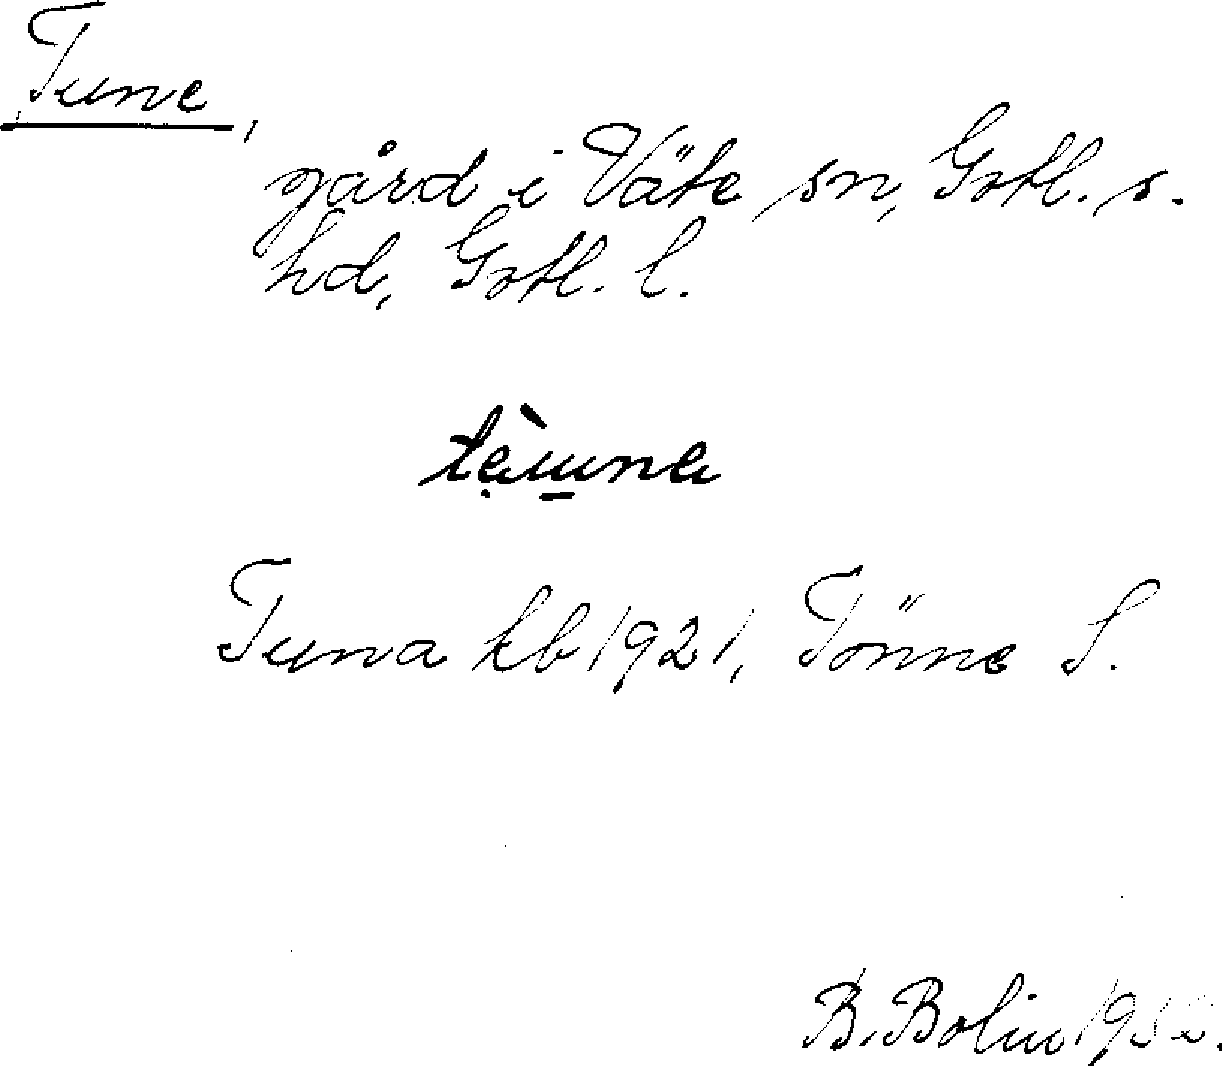 Tune,
gård i Väte sn, Gotl. s.
hd, Gotl. l.
Tuna kb 1921, Tönne S.
B. Bolin